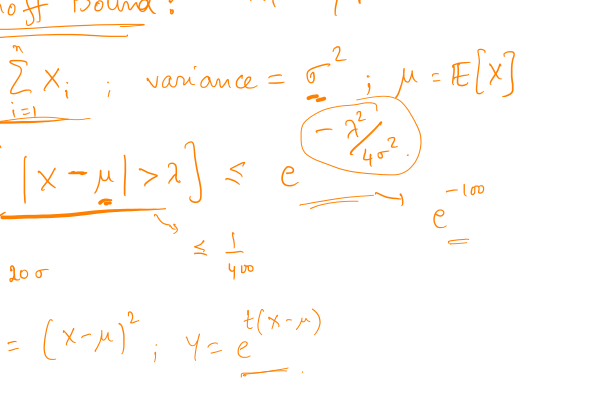 off Bound:
n
∑ X_i ; variance = σ² ; μ = E[X]
i=1
|X - μ| > λ] ≤ e^{-λ²/4σ²} → e^{-100}
≤ 1/400
20σ
= (X-μ)² ; Y = e^{t(X-μ)}